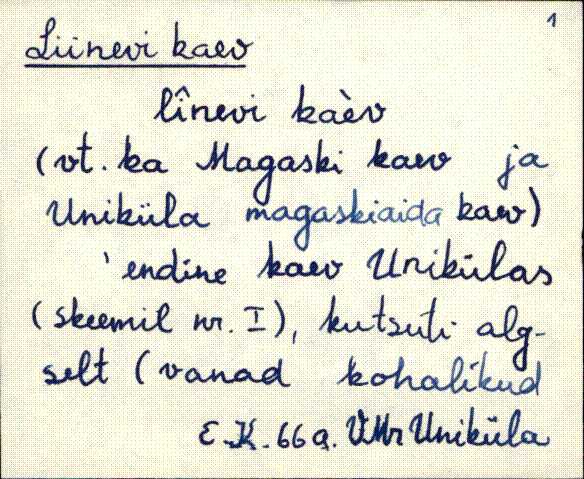 1
Liinevi kaev
lînevi kaèv
(vt. ka Magaski kaev ja
Uniküla magaskiaida kaev)
'endine kaev Unikülas
(skeemil nr. I), kutsuti alg-
selt (vanad kohalikud
E. K. 66 a. VMr Uniküla